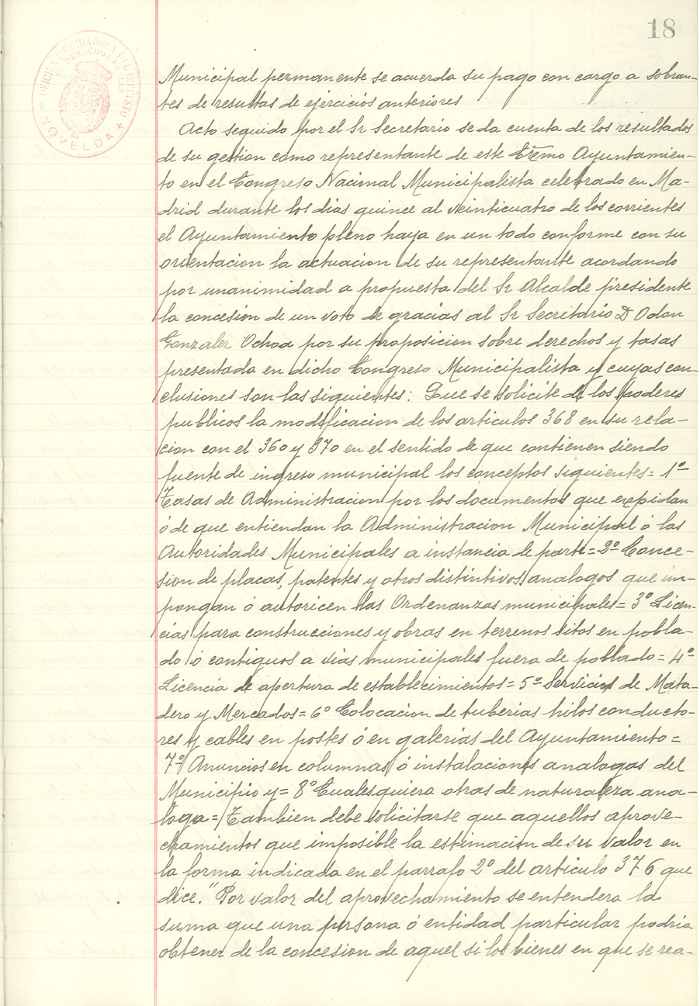 18
NOVELDA
Municipal permanente se acuerda su pago con cargo a sobran-
tes de resultas de ejercicios anteriores
Acto seguido por el Sr Secretario se da cuenta de los resultados
de su gestion como representante de este Exmo Ayuntamien-
to en el Congreso Nacional Municipalista celebrado en Ma-
drid durante los dias quince al veinticuatro de los corrientes
el Ayuntamiento pleno haya en un todo conforme con su
orientacion la actuacion de su representante acordando
por unanimidad a propuesta del Sr Alcalde presidente
la concesion de un voto de gracias al Sr Secretario D Odon
Gonzalez Ochoa por su proposicion sobre derechos y tasas
presentada en dicho Congreso Municipalista y cuyas con
clusiones son las siguientes: Que se solicite de los poderes
publicos la modificacion de los articulos 368 en su rela-
cion con el 360 y 370 en el sentido de que contienen siendo
fuente de ingreso municipal los conceptos siguientes = 1º
Tasas de Administracion por los documentos que expidan
ó de que entiendan la Administracion Municipal ó las
Autoridades Municipales a instancia de parte = 2º Conce-
sion de placas, patentes y otros distintivos analogos que im-
pongan ó autoricen las Ordenanzas municipales = 3º Licen-
cias para construcciones y obras en terrenos sitos en pobla-
do ó contiguos a vias municipales fuera de poblado = 4º
Licencia de apertura de establecimientos = 5º Servicios de Mata-
dero y Mercados = 6º Colocacion de tuberias hilos conducto-
res y cables en postes ó en galerias del Ayuntamiento =
7º Anuncios en columnas ó instalaciones analogas del
Municipio y = 8º Cualesquiera otras de naturaleza ana-
loga = Tambien debe solicitarse que aquellos aprove-
chamientos que imposible la estimacion de su valor en
la forma indicada en el parrafo 2º del articulo 376 que
dice. "Por valor del aprovechamiento se entendera la
suma que una persona ó entidad particular podria
obtener de la concesion de aquel si los bienes en que se rea-